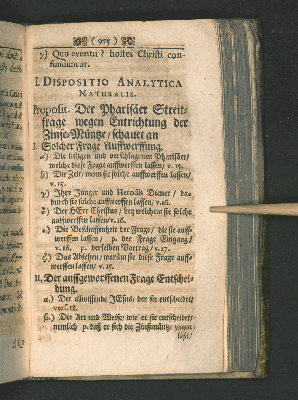 (975)
γ) Quo eventu? hostes Christi con-
fundantur.
I. DISPOSITIO ANALYTICA
NATURALIS.
Proposit. Der Pharisäer Streit-
frage wegen Entrichtung der
Zinse-Müntze/ schauet an
I. Solcher Frage Auffwerffung.
α) Die listigen und verschlagenen Pharisäer/
welche diese Frage auffwerffen lassen/ v. 15.
β) Die Zeit/ wenn sie solche auffwerffen lassen/
v. 15.
γ) Ihre Jünger und Herodis Diener/ da-
durch sie solche auffwerffen lassen/ v. 16.
δ) Der HErr Christus/ bey welchem sie solche
auffwerffen lassen/ v. 16.
ε) Die Beschaffenheit der Frage/ die sie auff-
werffen lassen/ p. der Frage Eingang/
v. 16. p. derselben Vortrag/ v. 17.
ζ) Das Absehen/ warum sie diese Frage auff-
werffen lassen/ v. 15.
II. Der auffgeworffenen Frage Entschei-
dung.
α.) Der allwissende JEsus/ der sie entscheidet/
v. 18.
β.) Die Art und Weise/ wie er sie entscheidet/
nemlich p. daß er sich die Zinßmüntze zeigen
läst/